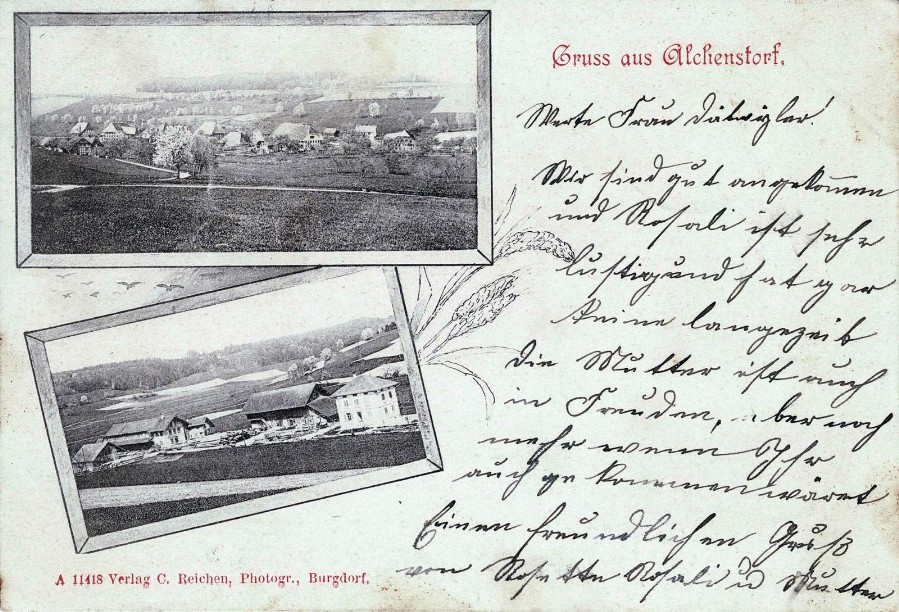 Gruss aus Alchenstorf.
Werte Frau Dätwyler!
Wir sind gut angekommen
und Rosali ist sehr
lustig und hat gar
keine langezeit
die Mutter ist auch
in Freuden, aber noch
mehr wenn Ihr
auch gekommen wäret
Einen freundlichen Gruß
von Rosette Rosali u Mutter
A 11418 Verlag C. Reichen, Photogr., Burgdorf.